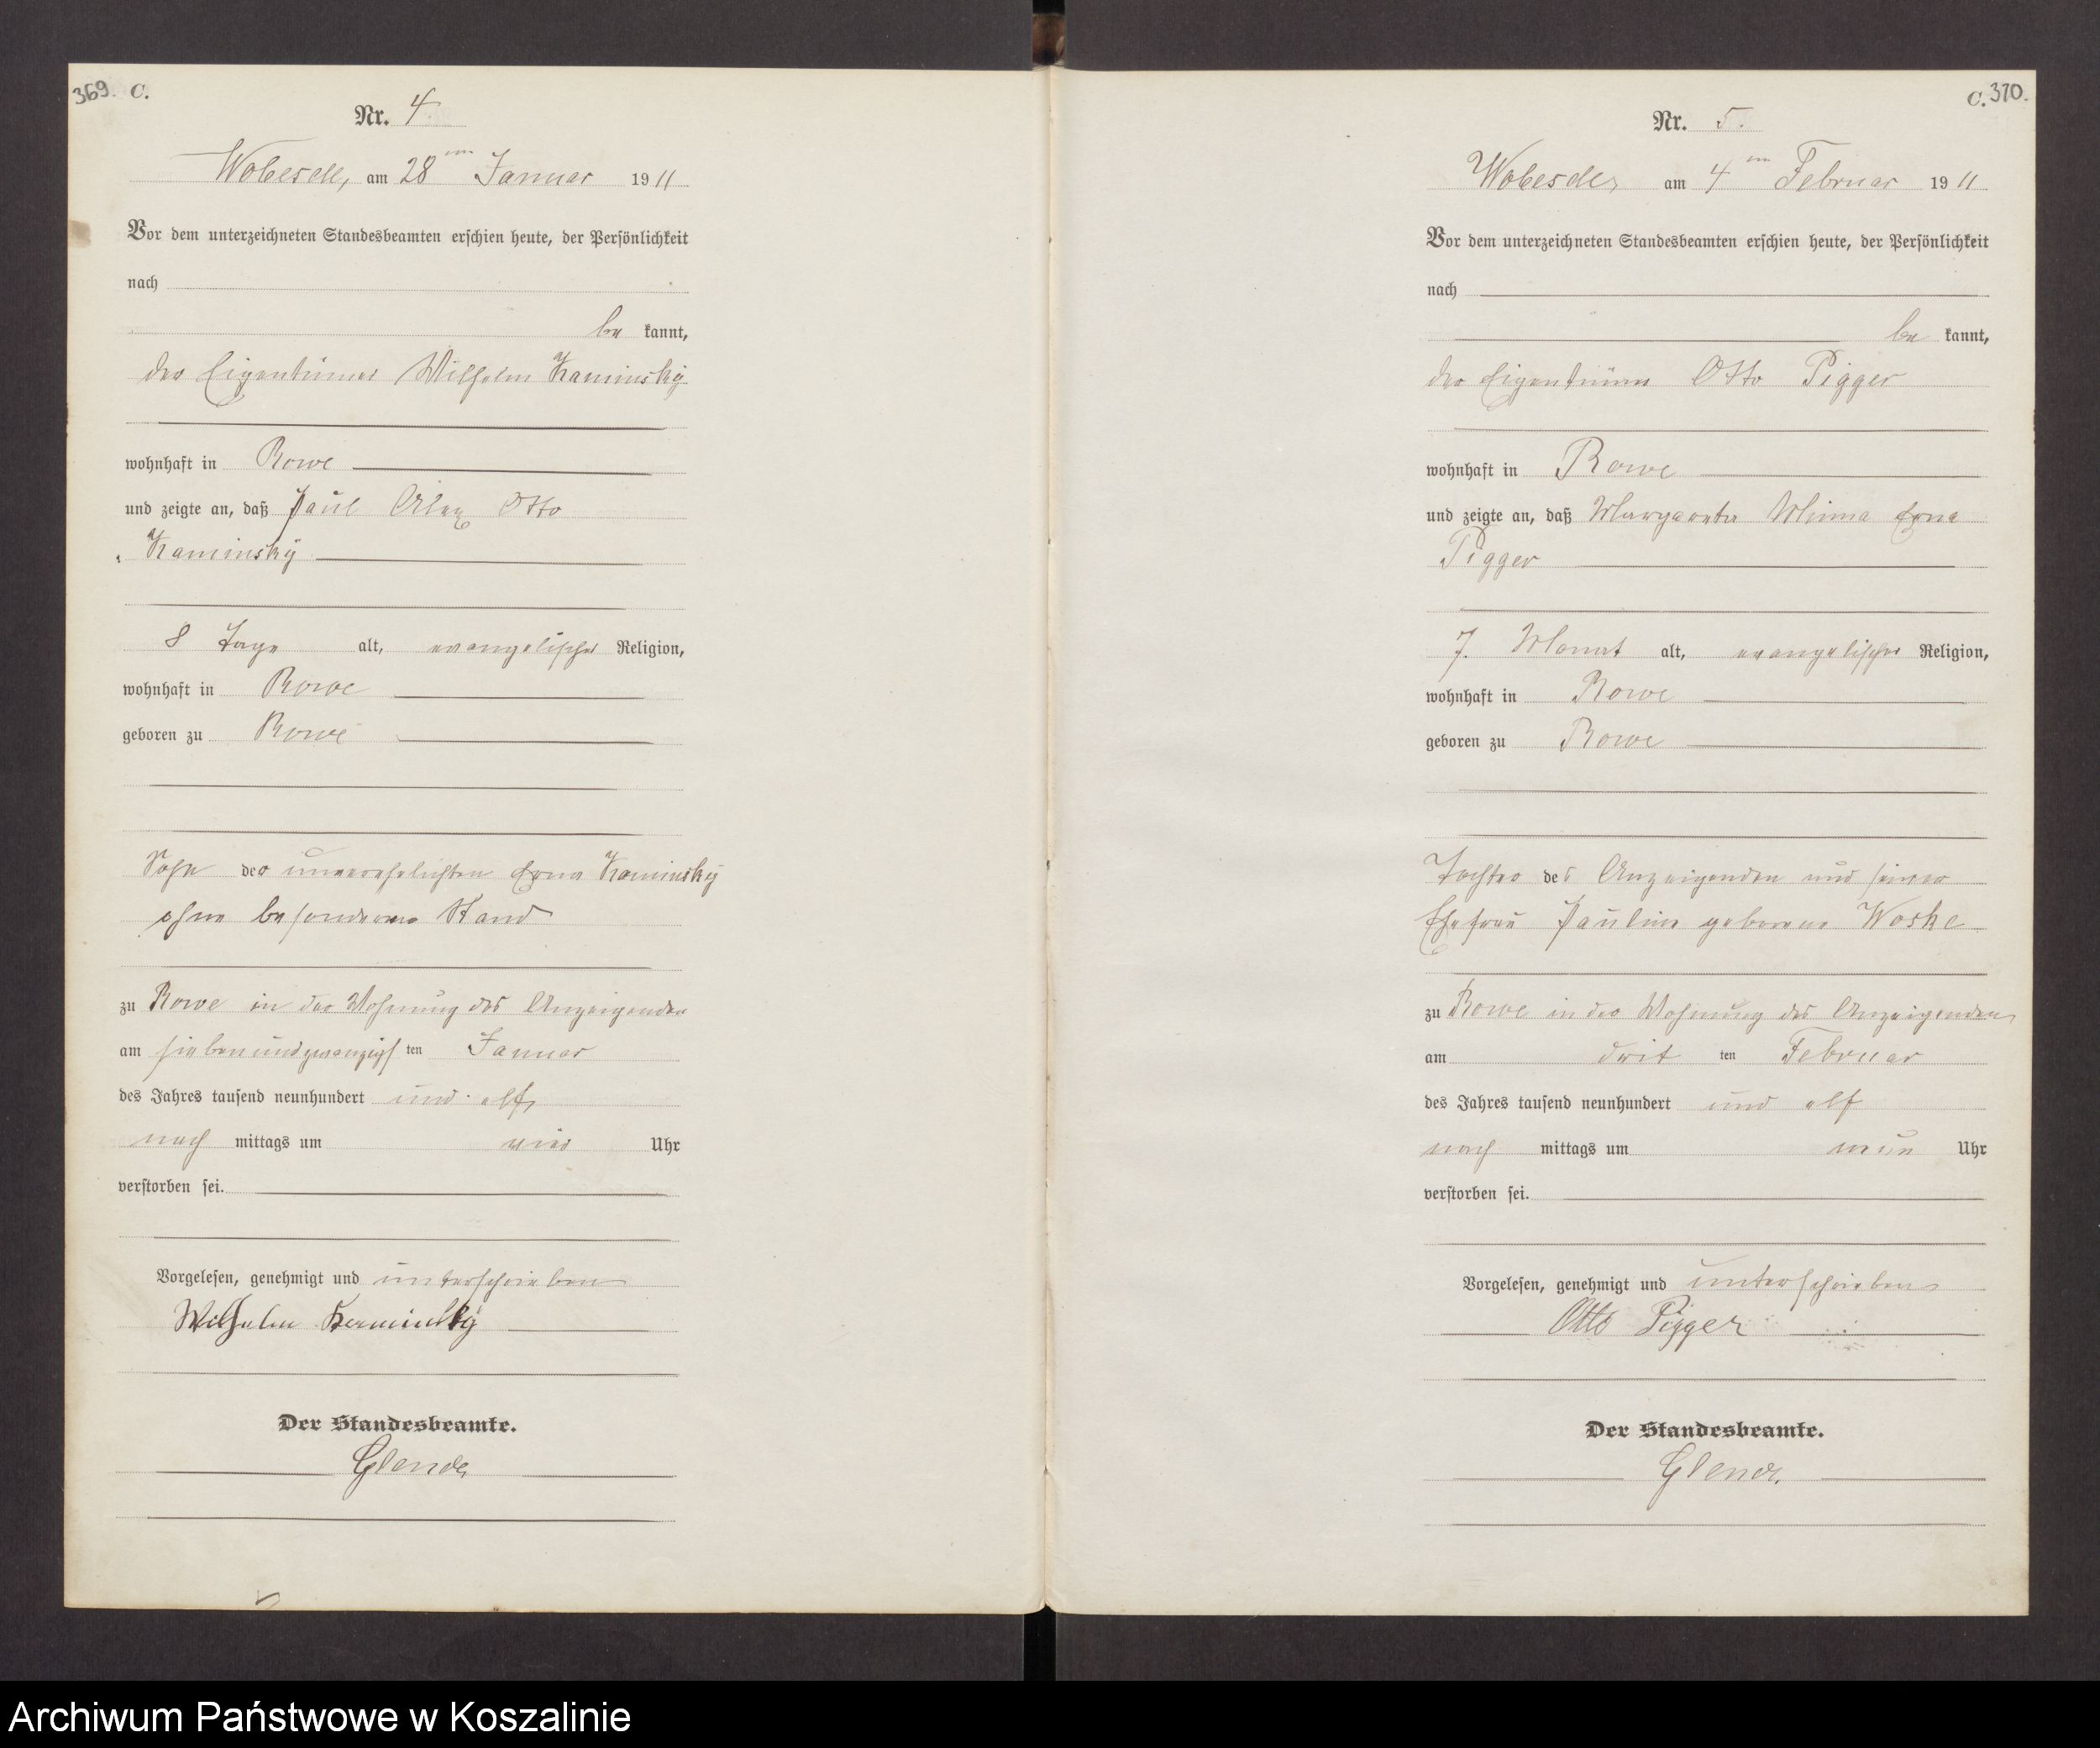 369. C.
Nr. 4.
Wobesde, am 28ten Januar 1911
Vor dem unterzeichneten Standesbeamten erschien heute, der Persönlichkeit
nach
be kannt,
der Eigentümer Wilhelm Kaminsky
wohnhaft in Rowe
und zeigte an, daß Paul Otto
Kaminsky
8 Tage alt, evangelischer Religion,
wohnhaft in Rowe
geboren zu Rowe
Sohn der unverehelichten Erna Kaminsky
ohne besonderen Stand
zu Rowe in der Wohnung des Anzeigenden
am siebenundzwanzigsten Januar
des Jahres tausend neunhundert und elf
nach mittags um vier Uhr
verstorben sei.
Vorgelesen, genehmigt und unterschrieben
Wilhelm Kaminsky
Der Standesbeamte.
Glende
C. 370.
Nr. 5.
Wobesde, am 4ten Februar 1911
Vor dem unterzeichneten Standesbeamten erschien heute, der Persönlichkeit
nach
be kannt,
der Eigentümer Otto Pigger
wohnhaft in Rowe
und zeigte an, daß Margareta Minna Erna
Pigger
7. Monat alt, evangelischer Religion,
wohnhaft in Rowe
geboren zu Rowe
Tochter des Anzeigenden und seiner
Ehefrau Pauline geborene Woske
zu Rowe in der Wohnung des Anzeigenden
am dritten Februar
des Jahres tausend neunhundert und elf
nach mittags um neun Uhr
verstorben sei.
Vorgelesen, genehmigt und unterschrieben
Otto Pigger
Der Standesbeamte.
Glende
Archiwum Państwowe w Koszalinie